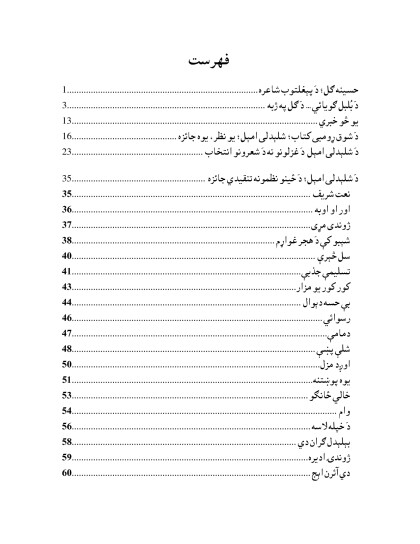 فهرست
حسینه ګل؛ دَ پېغلتوب شاعره 1
دَ بُلبل ګویائي... دَ ګل په ژبه 3
یو څو خبرې 13
دَ شوق ړومبی کتاب؛ شلېدلی امېل؛ یو نظر، یوه جائزه 16
دَ شلېدلی امېل دَ غزلونو نه دَ شعرونو انتخاب 23
دَ شلېدلی امېل؛ دَ ځینو نظمونه تنقیدي جائزه 35
نعت شریف 35
اور او اوبه 36
ژوندی مړی 37
شپیو کې دَ هجر غواړم 38
سل خبرې 40
تسلیمې جذبې 41
کور کور یو مزار 43
بې حسه دېوال 44
رسوائي 46
دمامې 47
شلې پښې 48
اوږد مزل 50
یوه پوښتنه 51
خالي ځانګو 53
وام 54
دَ خپله لاسه 56
بېلېدل ګران دي 58
ژوندۍ ادېره 59
دي آئرن ایج 60